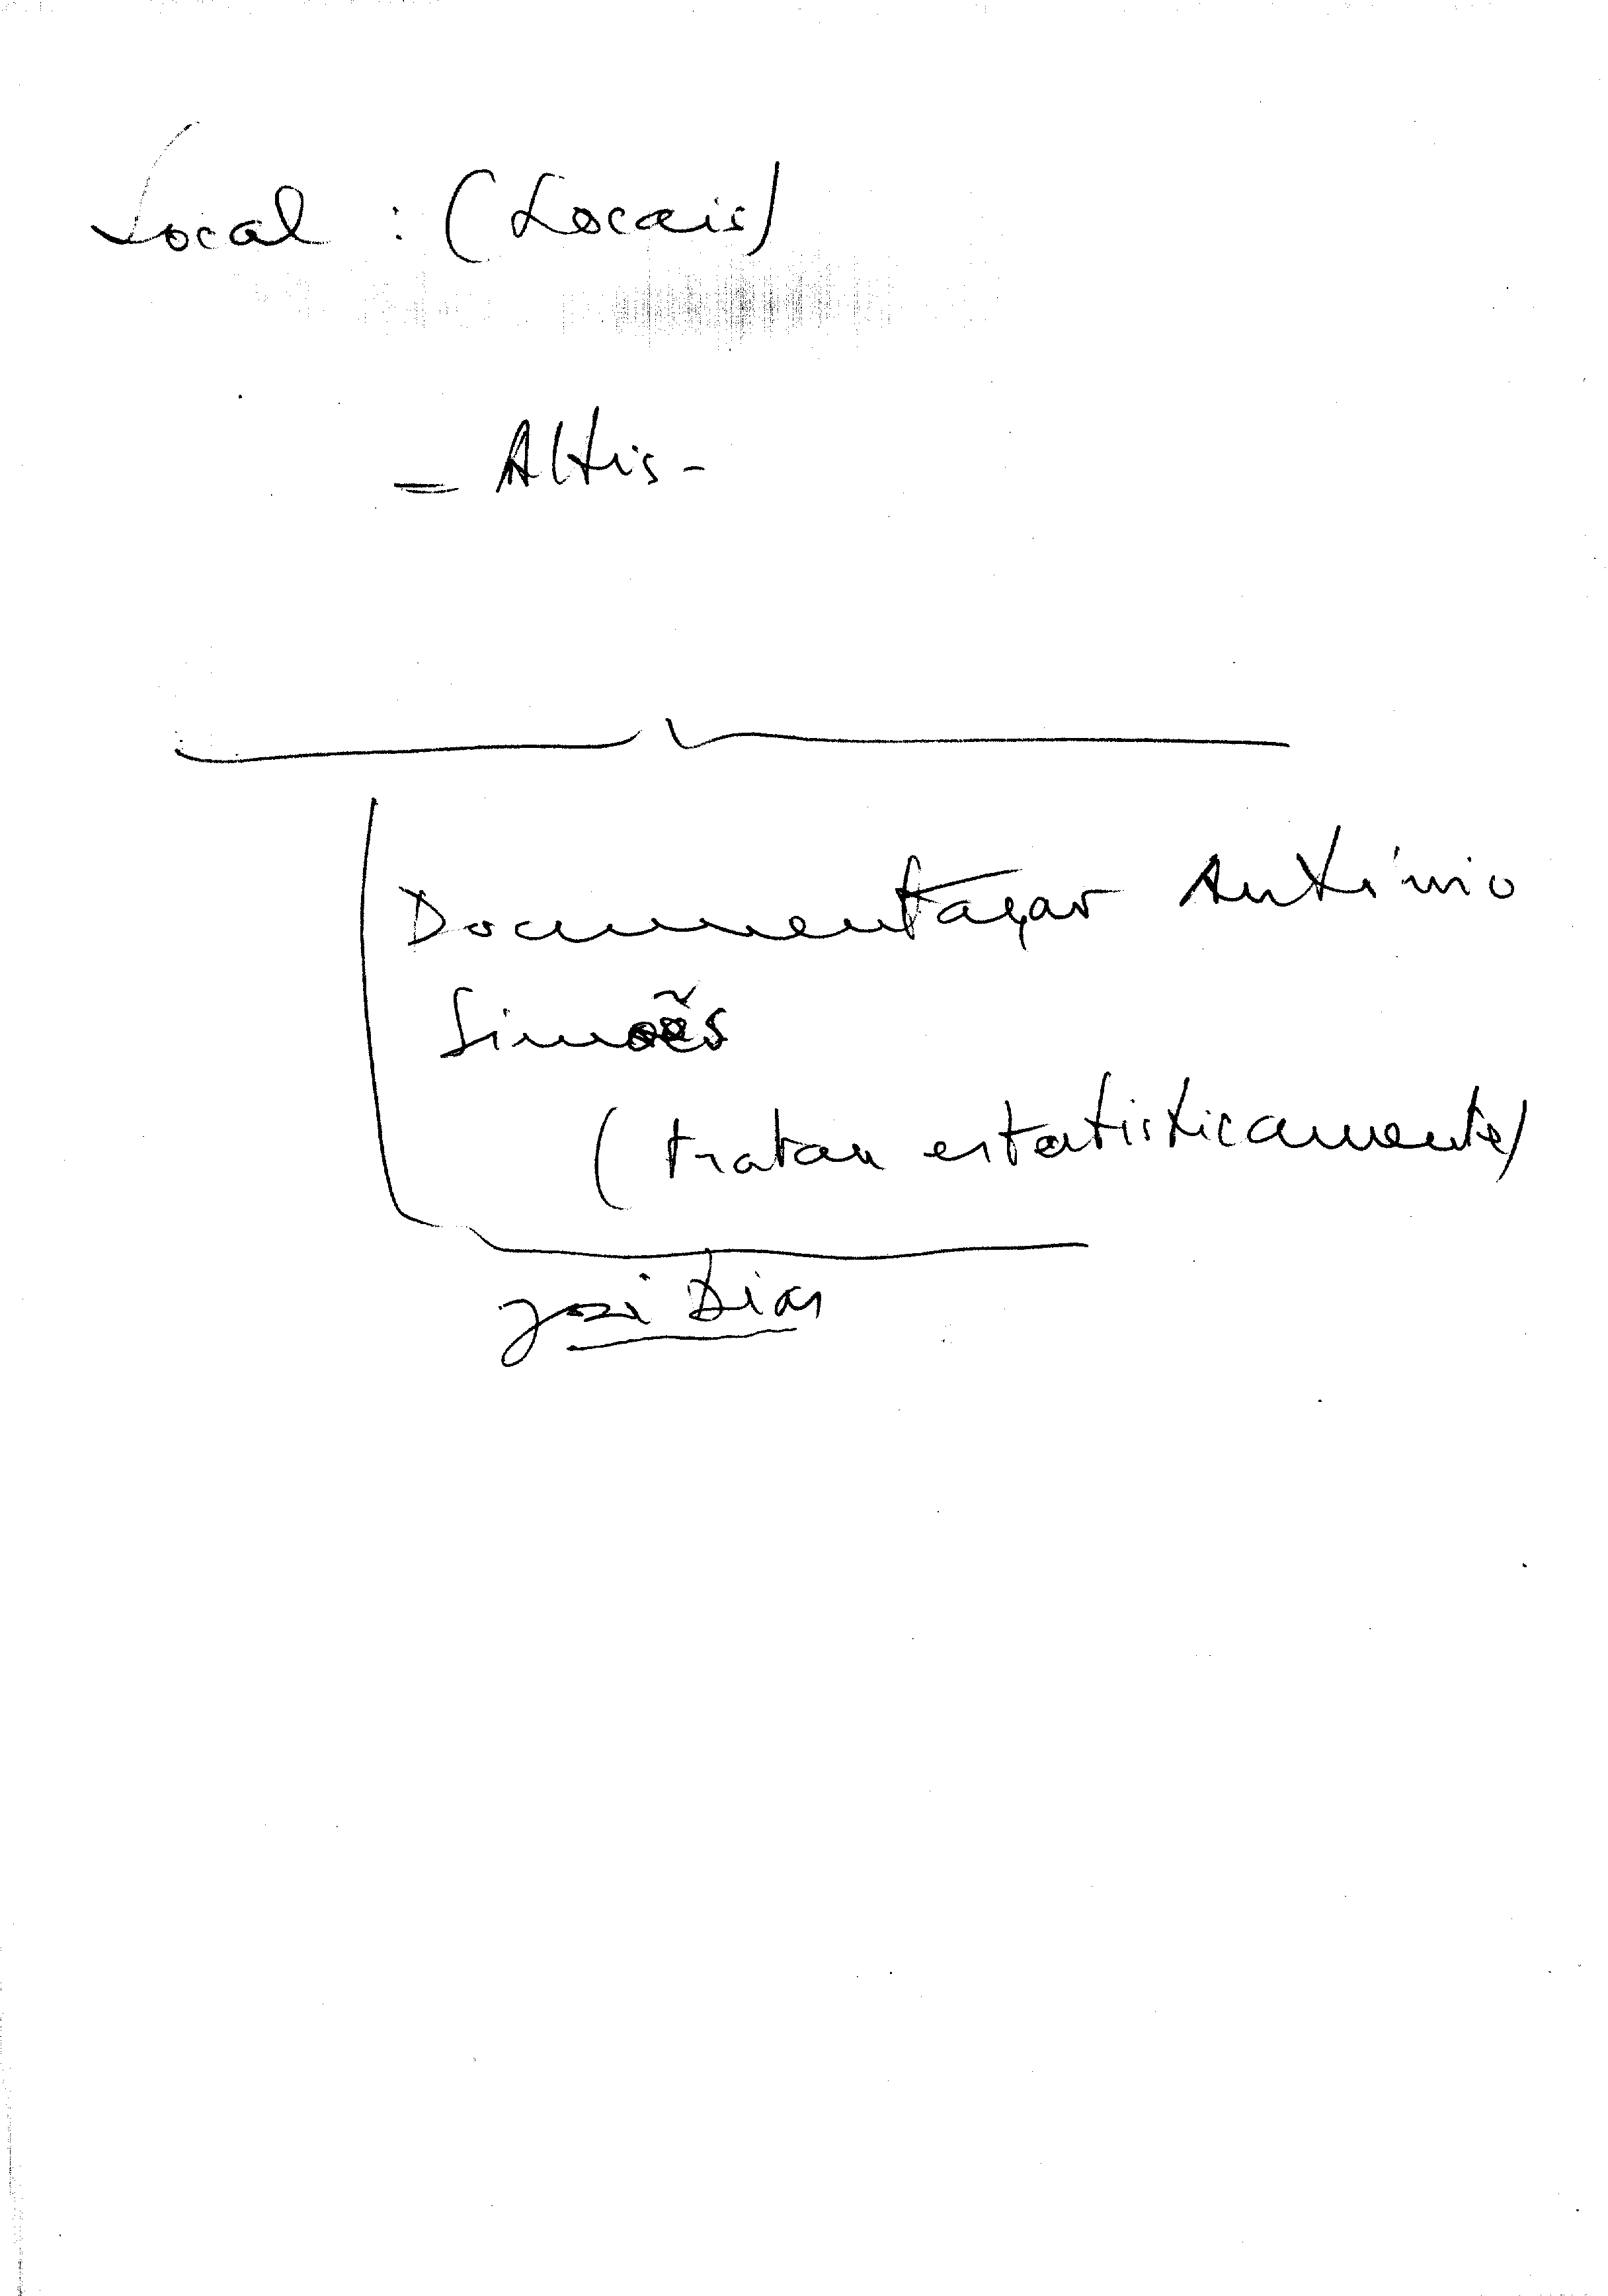 Local : (Locais)
- Altis -
Documentação António
Simões
(tratar estatisticamente)
José Dias